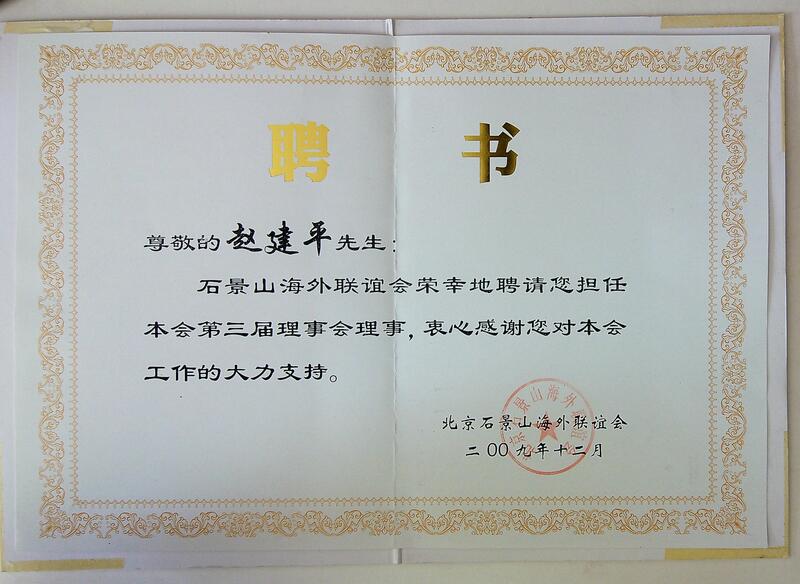 聘 书
尊敬的赵建平先生：
石景山海外联谊会荣幸地聘请您担任
本会第三届理事会理事，衷心感谢您对本会
工作的大力支持。
北京石景山海外联谊会
二OO九年十二月
北京石景山海外联谊会